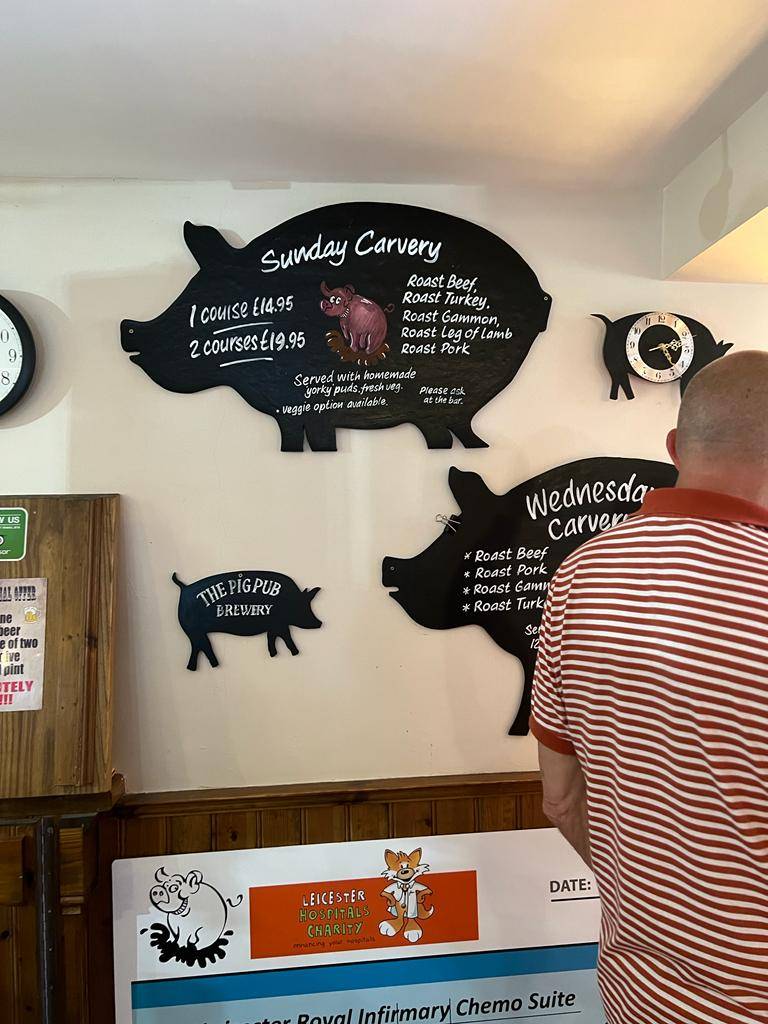 Sunday Carvery
1 course £14.95
2 courses £19.95
Roast Beef,
Roast Turkey,
Roast Gammon,
Roast Leg of Lamb
Roast Pork
Served with homemade
yorky puds, fresh veg.
• veggie option available.
Please ask
at the bar.
9
8
Wednesday
Carvery
* Roast Beef
* Roast Pork
* Roast Gamm
* Roast Turk
Se
12
THE PIG PUB
BREWERY
W US
OFFER
ne
beer
e of two
ive
pint
TELY
!!!
LEICESTER
HOSPITALS
CHARITY
enhancing your hospitals
DATE:
Royal Infirmary Chemo Suite